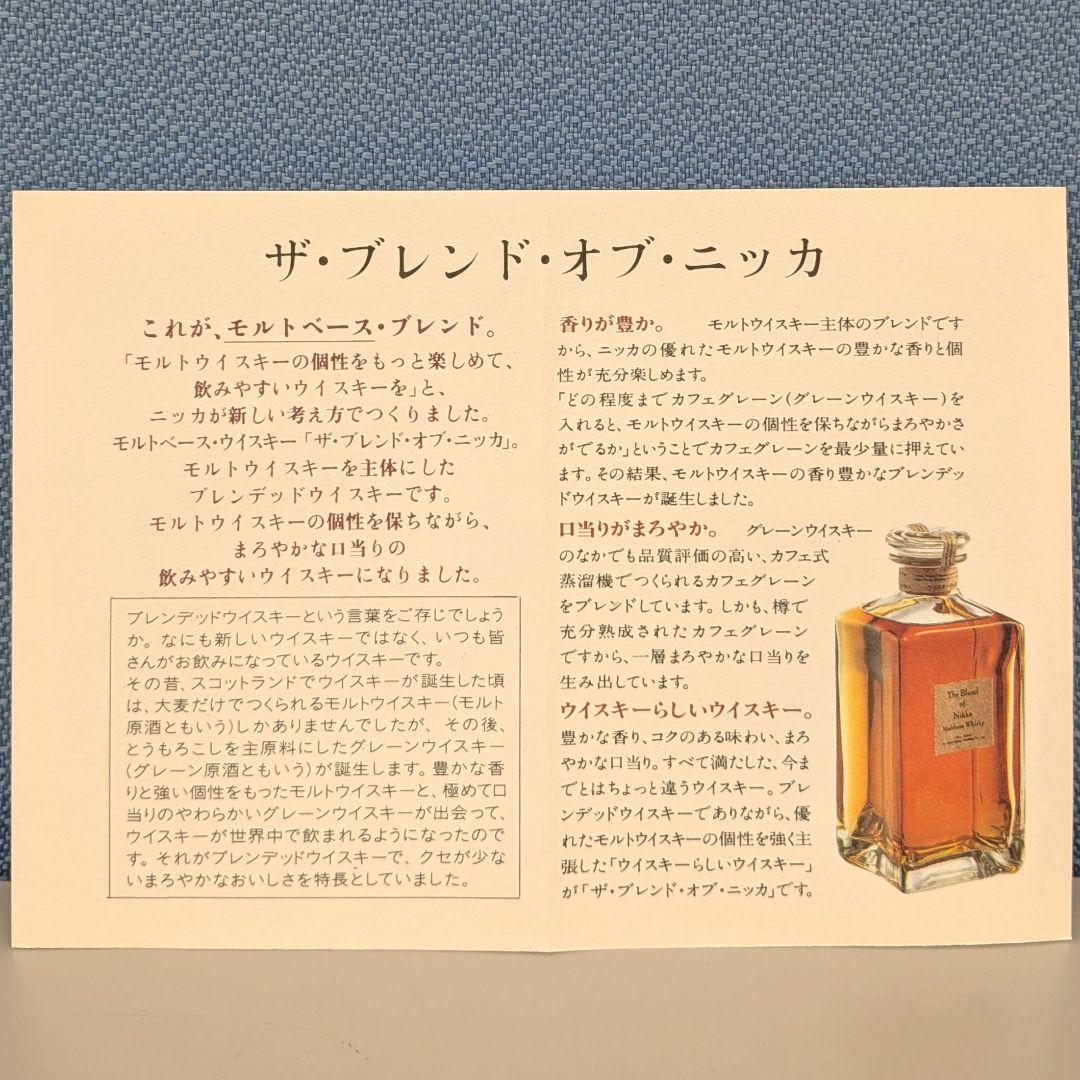 ザ・ブレンド・オブ・ニッカ
これが、モルトベース・ブレンド。
「モルトウイスキーの個性をもっと楽しめて、
飲みやすいウイスキーを」と、
ニッカが新しい考え方でつくりました。
モルトベース・ウイスキー「ザ・ブレンド・オブ・ニッカ」。
モルトウイスキーを主体にした
ブレンデッドウイスキーです。
モルトウイスキーの個性を保ちながら、
まろやかな口当りの
飲みやすいウイスキーになりました。
ブレンデッドウイスキーという言葉をご存じでしょう
か。なにも新しいウイスキーではなく、いつも皆
さんがお飲みになっているウイスキーです。
その昔、スコットランドでウイスキーが誕生した頃
は、大麦だけでつくられるモルトウイスキー(モルト
原酒ともいう)しかありませんでしたが、その後、
とうもろこしを主原料にしたグレーンウイスキー
(グレーン原酒ともいう)が誕生します。豊かな香
りと強い個性をもったモルトウイスキーと、極めて口
当りのやわらかいグレーンウイスキーが出会って、
ウイスキーが世界中で飲まれるようになったので
す。それがブレンデッドウイスキーで、クセが少な
いまろやかなおいしさを特長としていました。
香りが豊か。 モルトウイスキー主体のブレンドです
から、ニッカの優れたモルトウイスキーの豊かな香りと個
性が充分楽しめます。
「どの程度までカフェグレーン(グレーンウイスキー)を
入れると、モルトウイスキーの個性を保ちながらまろやかさ
がでるか」ということでカフェグレーンを最少量に押えてい
ます。その結果、モルトウイスキーの香り豊かなブレンデッ
ドウイスキーが誕生しました。
口当りがまろやか。 グレーンウイスキー
のなかでも品質評価の高い、カフェ式
蒸溜機でつくられるカフェグレーン
をブレンドしています。しかも、樽で
充分熟成されたカフェグレーン
ですから、一層まろやかな口当りを
生み出しています。
ウイスキーらしいウイスキー。
豊かな香り、コクのある味わい、まろ
やかな口当り。すべて満たした、今ま
でとはちょっと違うウイスキー。ブレ
ンデッドウイスキーでありながら、優
れたモルトウイスキーの個性を強く主
張した「ウイスキーらしいウイスキー」
が「ザ・ブレンド・オブ・ニッカ」です。
The Blend
of
Nikka
Maltbase Whisky